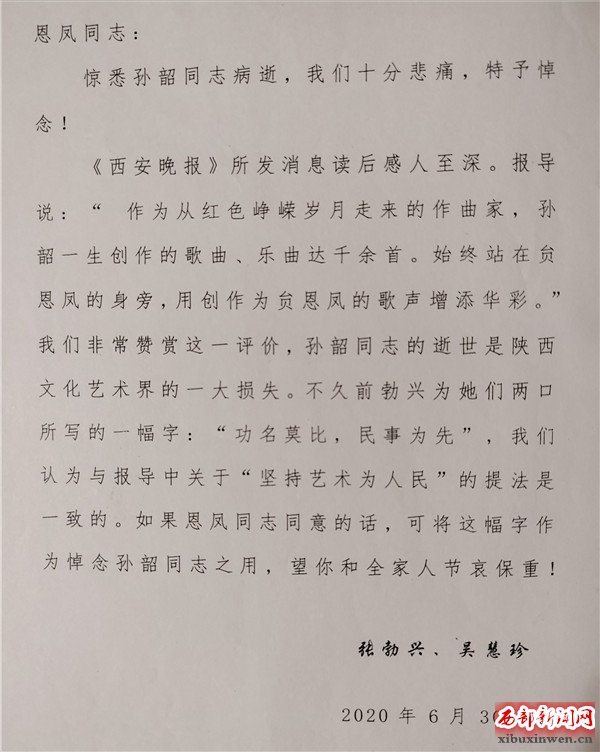 恩凤同志：
惊悉孙韶同志病逝，我们十分悲痛，特予悼
念！
《西安晚报》所发消息读后感人至深。报导
说：“ 作为从红色峥嵘岁月走来的作曲家，孙
韶一生创作的歌曲、乐曲达千余首。始终站在贠
恩凤的身旁，用创作为贠恩凤的歌声增添华彩。”
我们非常赞赏这一评价，孙韶同志的逝世是陕西
文化艺术界的一大损失。不久前勃兴为她们两口
所写的一幅字：“功名莫比，民事为先”，我们
认为与报导中关于“坚持艺术为人民”的提法是
一致的。如果恩凤同志同意的话，可将这幅字作
为悼念孙韶同志之用，望你和全家人节哀保重！
张勃兴、吴慧珍
2020 年 6 月 30
西部新闻网
xibuxinwen.cn